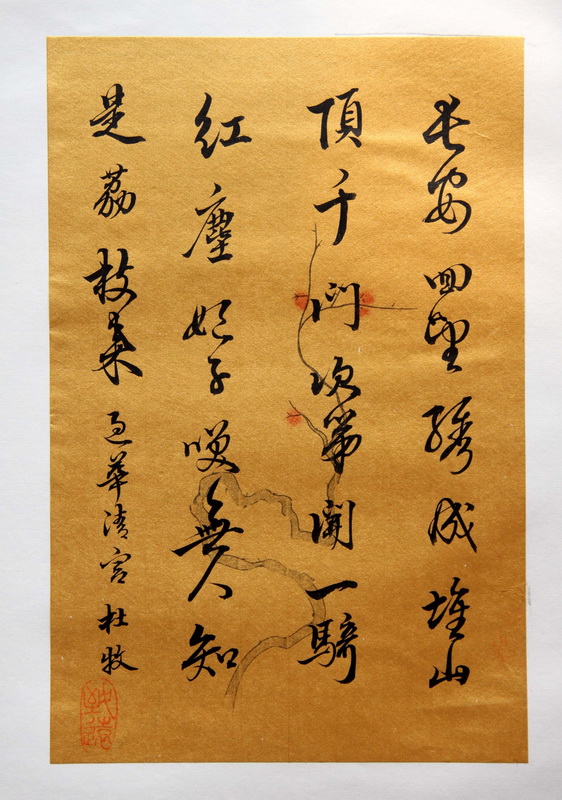 長安回望綉成堆山
頂千门次第開一騎
紅塵妃子咲無人知
是荔枝来 過華清宮 杜牧